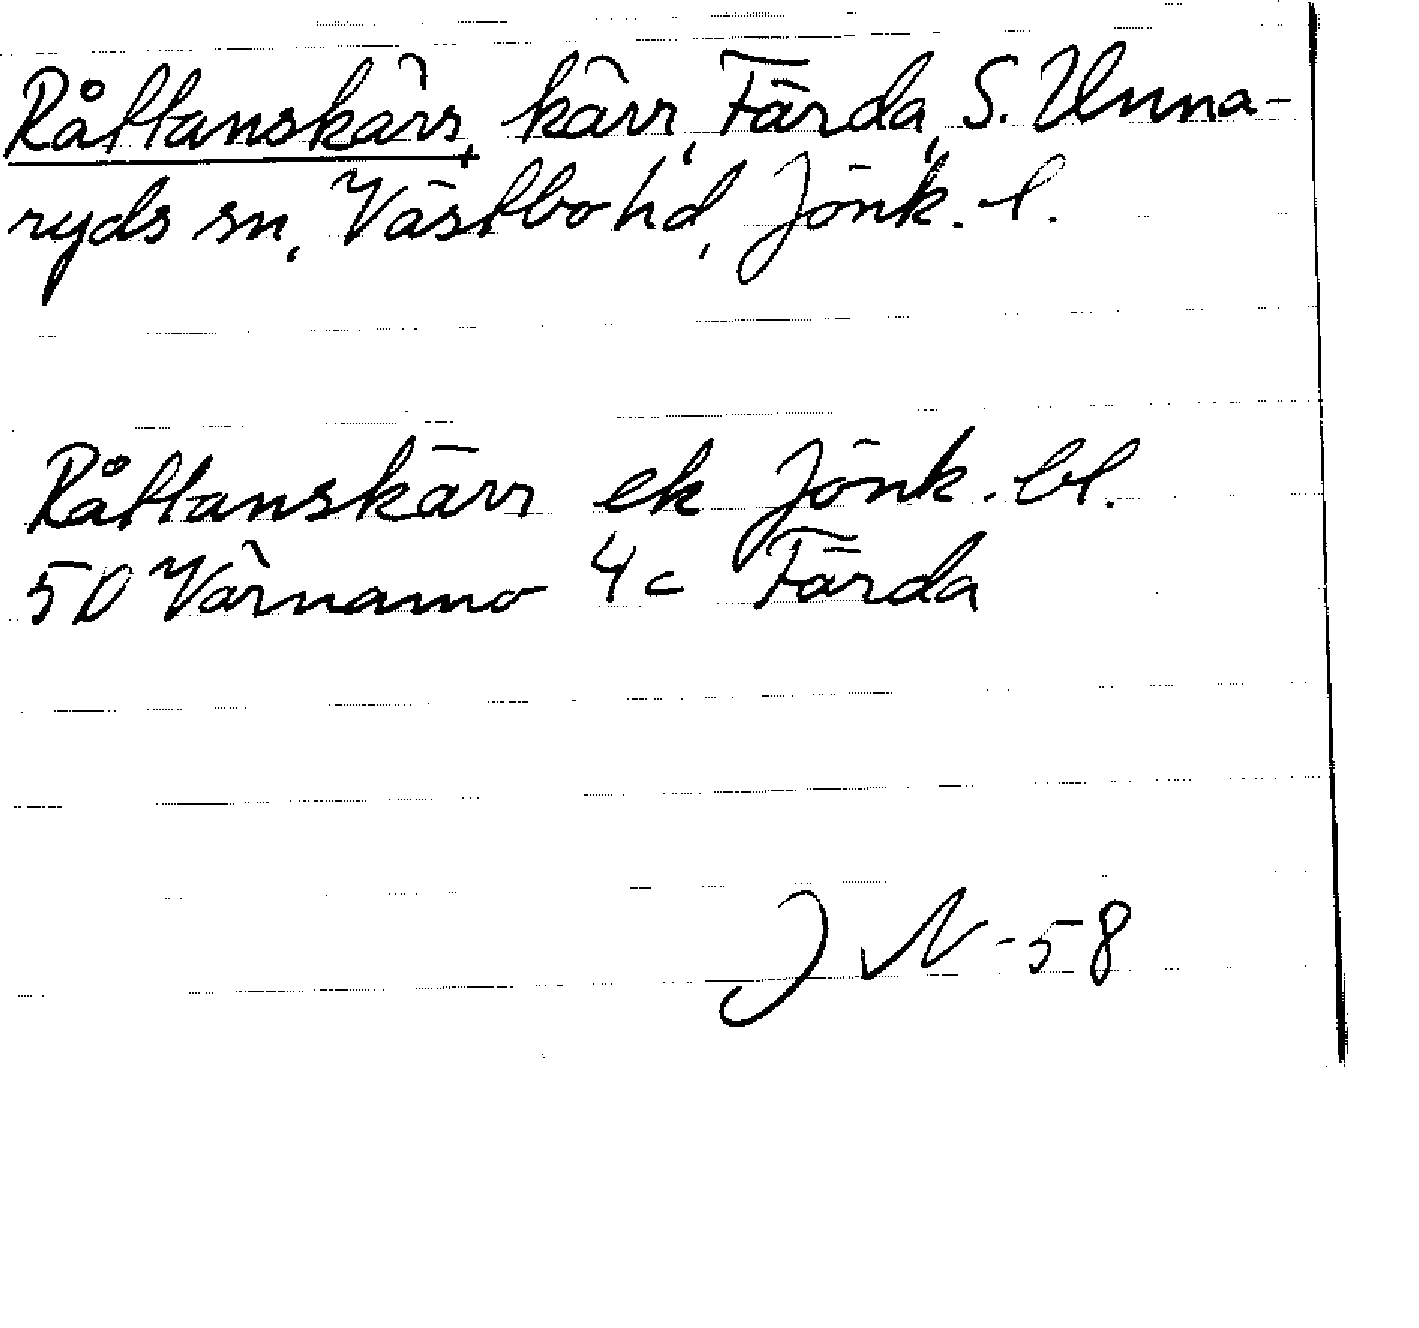 Råttanskärr, kärr, Färda, S. Unna-
ryds sn, Västbo hd, Jönk. l.
Råttanskärr ek Jönk. bl.
5D Värnamo 4c Färda
J N -58